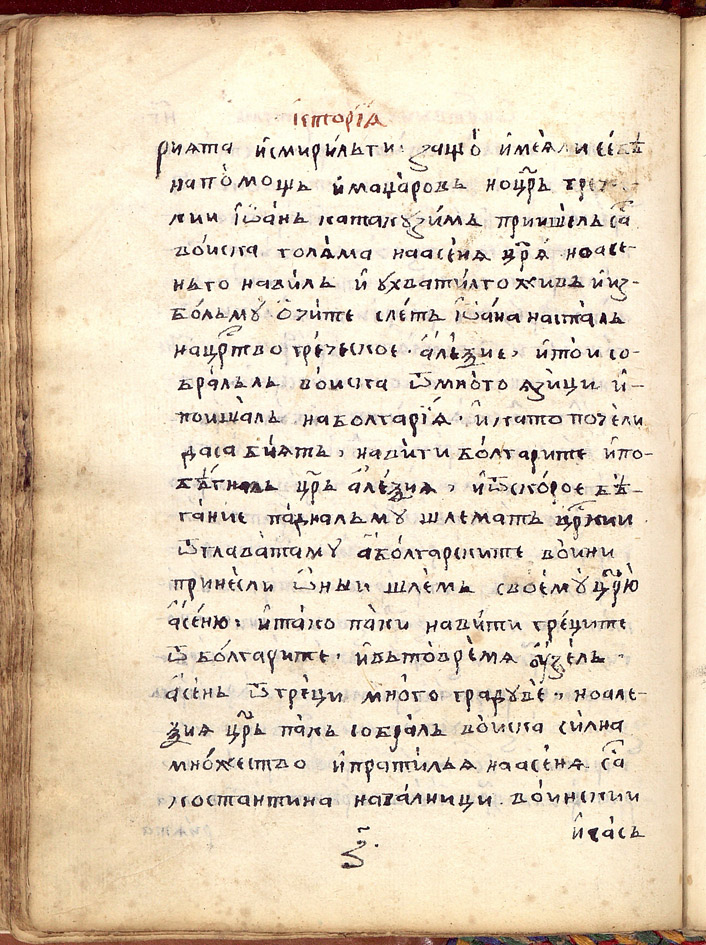 їсторїѧ
рията и҆смири́льти· защо̀ и҆мѣѧли сѐбѣ
напо̀мощь и҆маџа̀ровь но цр҃ь грече-
скии і҆ѡа́нь катакꙋзи́мь пришѐль са
во́иска голѧ̀ма на асе́нѧ цр҃ѧ̀ но асе-
нь го нави́ль и҆ ухвати́л го живь и из-
бо́ль мꙋ ѻчи́те слѐть і҆ѡа́на наста̀ль
на црⷭ҇тво гре́ческое· але́ѯие, и҆ то̀и со-
бра̀льль во̀иска ѿ мно̀го ꙗзи́ци и҆-
поиша̀ль на болгарі́ѧ· и҆ като поче́ли
да са бїѧть, навити бо́лгарите и҆по-
бѣ́гналь цр҃ь але́ѯиѧ, и҆ ѿ ско́рое бѣ̀-
гание па̀дналь мꙋ шлемать црⷭ҇кии
ѿ глава̀та мꙋ а҆ бо́лгарските во̀ини
прине́сли ѻ҆ныи шле́мь своемꙋ̀ цр҃ю̀
а҆се́ню· и҆ та́ко па́ки нави́ти гре́ците
ѿ бо́лгарите· и҆ вь то̀ вре́мѧ ѹзе́ль·
асе́нь ѿ гре́ци мно̀го градꙋ̀ве· но але-
ѯиѧ цр҃ь пакь собра̀ль во̀иска си́лна
мно́жество и҆ прати́ль ѧ на асе́нѧ са
костантина нава́лници во̀инскии
и҆ са̀сь
ѯ҃